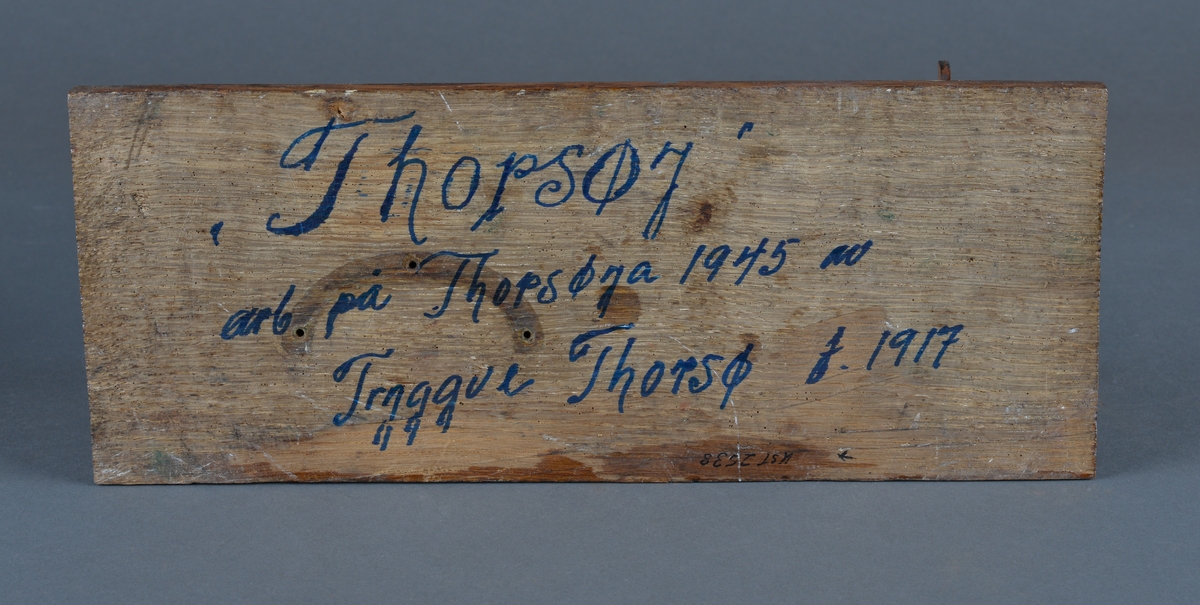 "Thorsøy"
arb på Thorsøya 1945 av
Tryggve Thorsø f. 1917
KST 2538